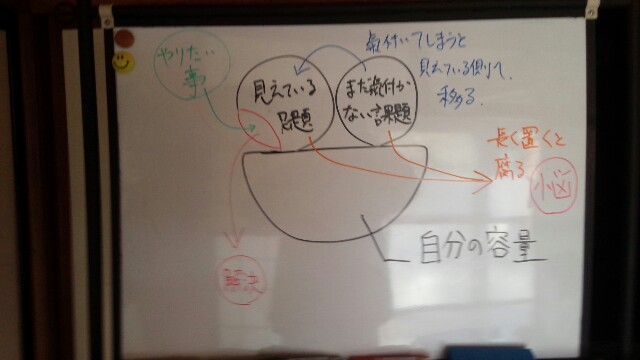 やりたい
事
見えている
問題
まだ気付か
ない課題
気付いてしまうと
見えている側に
移る。
長く置くと
腐る
悩
自分の容量
解決